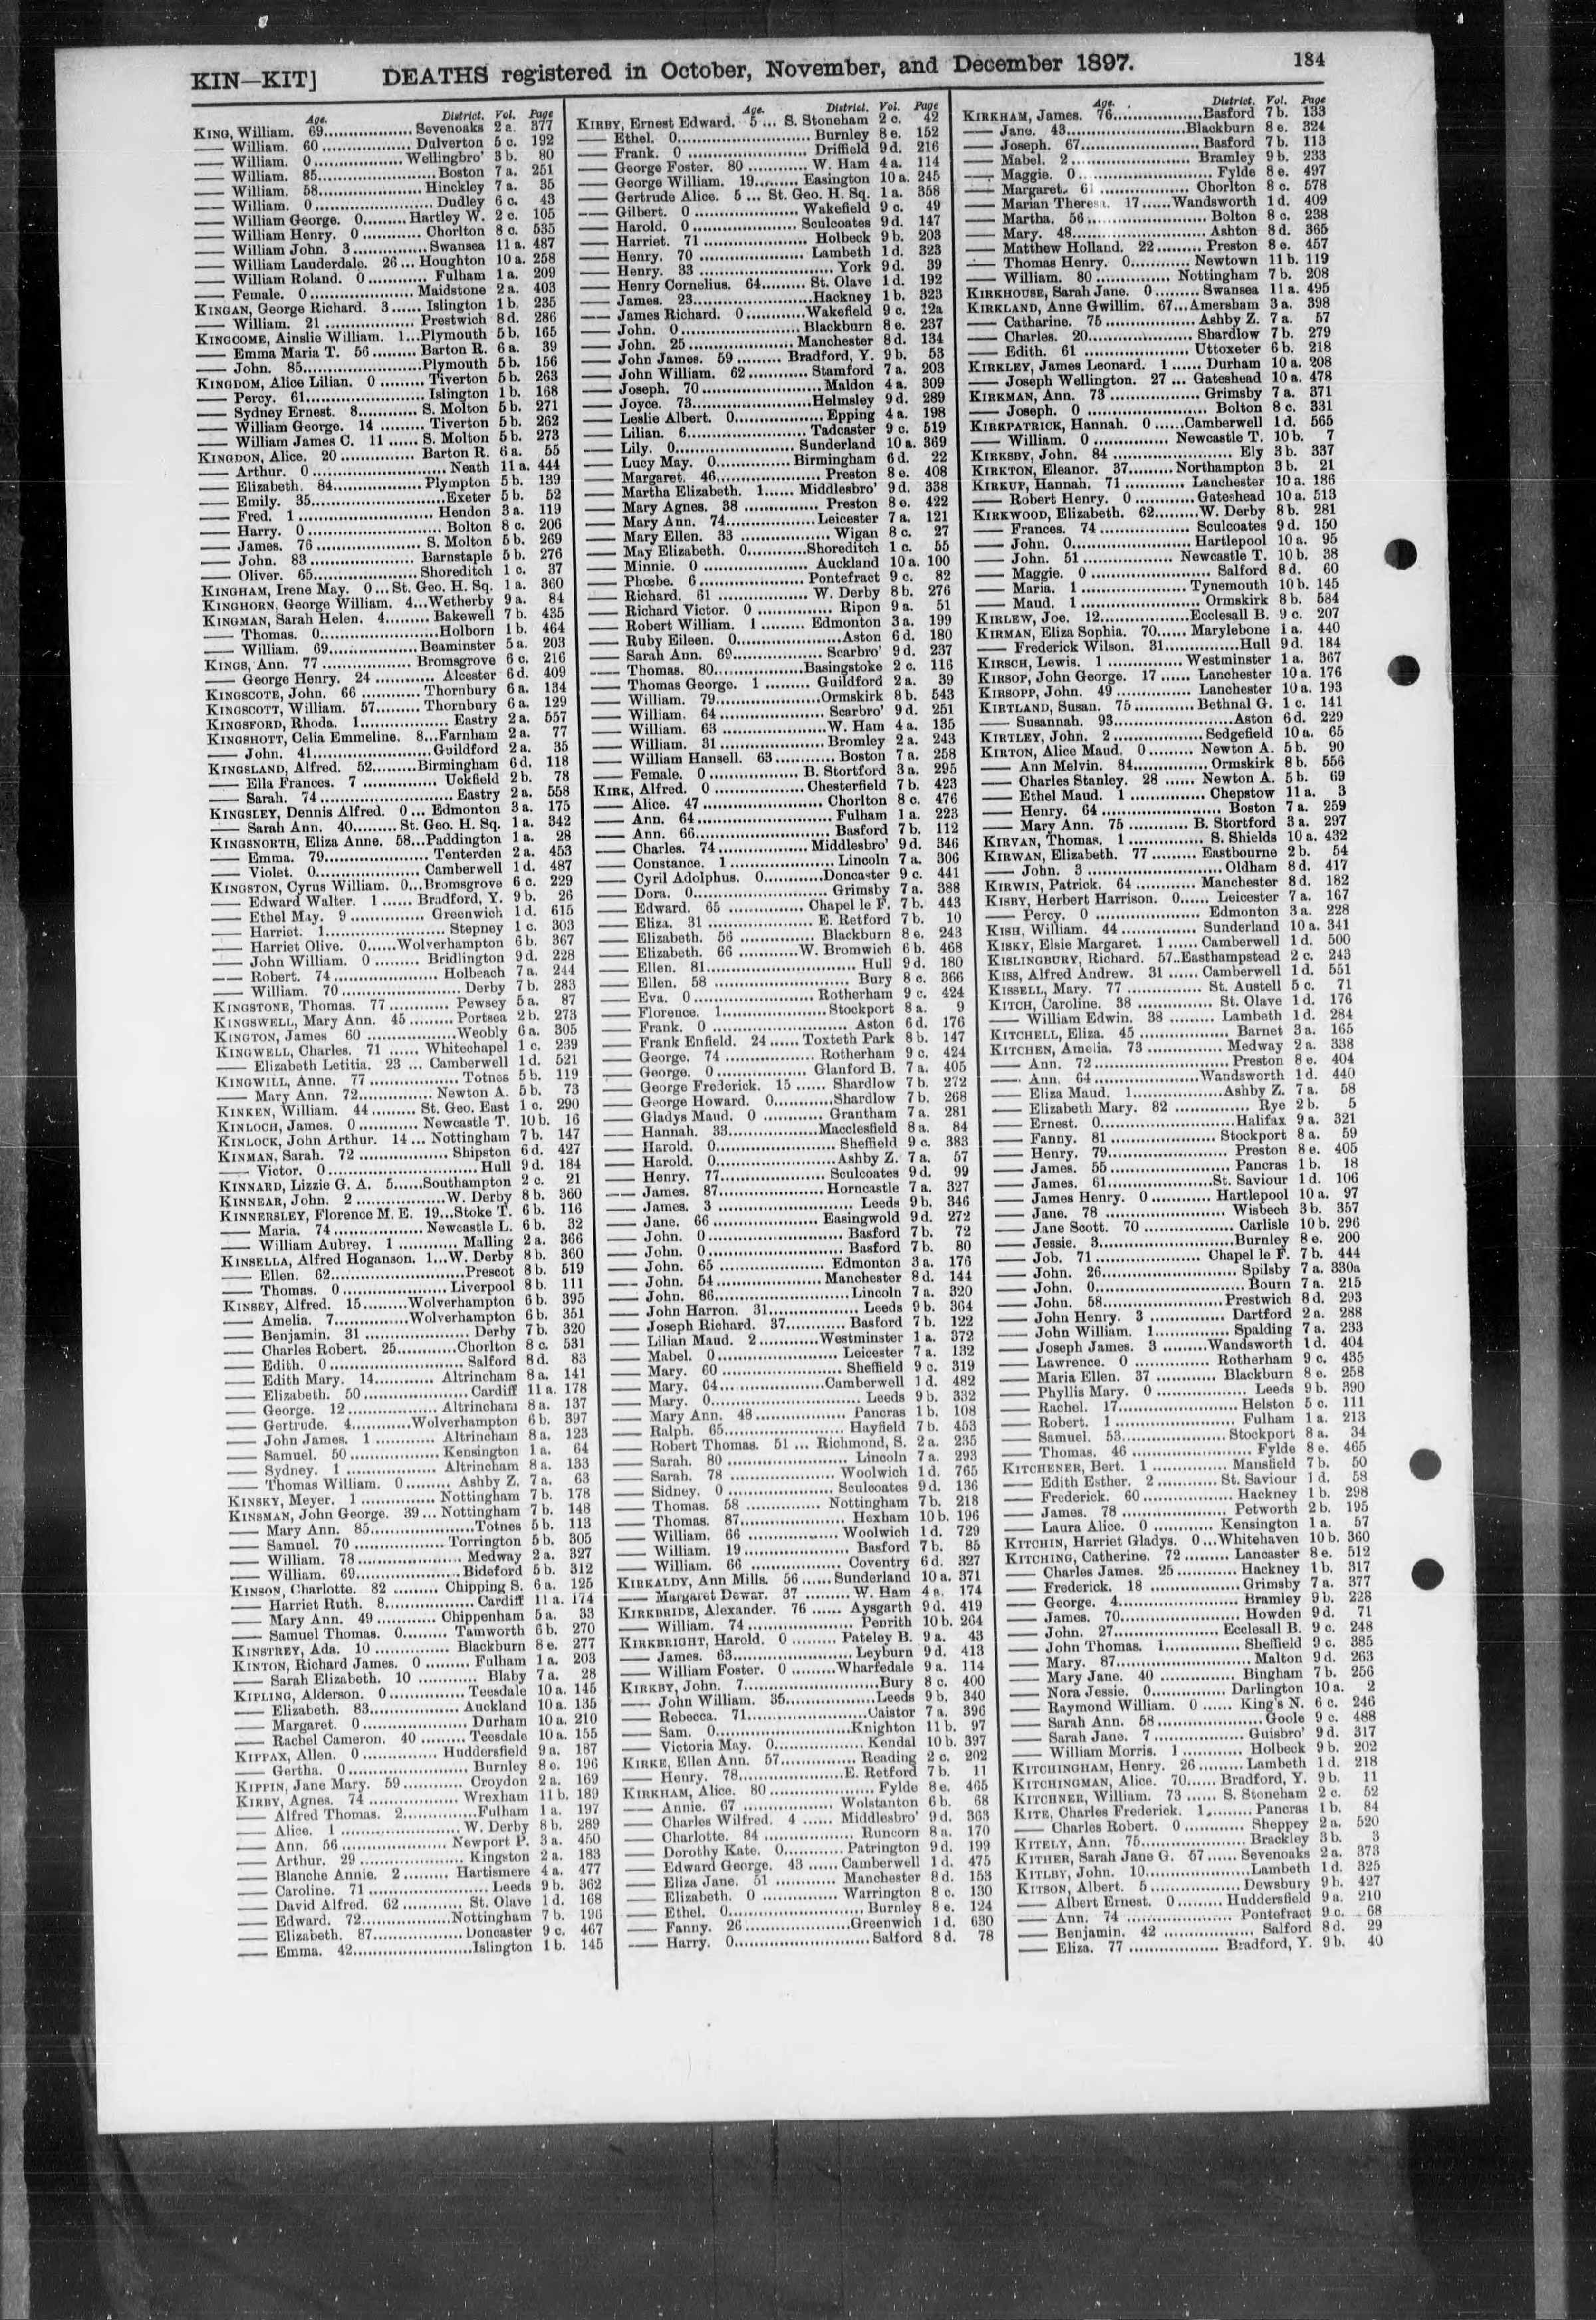 KIN—KIT] DEATHS registered in October, November, and December 1897. 184
Age. District. Vol. Page
KING, William. 69 Sevenoaks 2 a. 377
—— William. 60 Dulverton 5 c. 192
—— William. 0 Wellingbro' 3 b. 80
—— William. 85 Boston 7 a. 251
—— William. 58 Hinckley 7 a. 35
—— William. 0 Dudley 6 c. 43
—— William George. 0 Hartley W. 2 c. 105
—— William Henry. 0 Chorlton 8 c. 535
—— William John. 3 Swansea 11 a. 487
—— William Lauderdale. 26 Houghton 10 a. 258
—— William Roland. 0 Fulham 1 a. 209
—— Female. 0 Maidstone 2 a. 403
KINGAN, George Richard. 3 Islington 1 b. 235
—— William. 21 Prestwich 8 d. 286
KINGCOME, Ainslie William. 1 Plymouth 5 b. 165
—— Emma Maria T. 56 Barton R. 6 a. 39
—— John. 85 Plymouth 5 b. 156
KINGDOM, Alice Lilian. 0 Tiverton 5 b. 263
—— Percy. 61 Islington 1 b. 168
—— Sydney Ernest. 8 S. Molton 5 b. 271
—— William George. 14 Tiverton 5 b. 262
—— William James C. 11 S. Molton 5 b. 273
KINGDON, Alice. 20 Barton R. 6 a. 55
—— Arthur. 0 Neath 11 a. 444
—— Elizabeth. 84 Plympton 5 b. 139
—— Emily. 35 Exeter 5 b. 52
—— Fred. 1 Hendon 3 a. 119
—— Harry. 0 Bolton 8 c. 206
—— James. 76 S. Molton 5 b. 269
—— John. 83 Barnstaple 5 b. 276
—— Oliver. 65 Shoreditch 1 c. 37
KINGHAM, Irene May. 0 St. Geo. H. Sq. 1 a. 360
KINGHORN, George William. 4 Wetherby 9 a. 84
KINGMAN, Sarah Helen. 4 Bakewell 7 b. 435
—— Thomas. 0 Holborn 1 b. 464
—— William. 69 Beaminster 5 a. 203
KINGS, Ann. 77 Bromsgrove 6 c. 216
—— George Henry. 24 Alcester 6 d. 409
KINGSCOTE, John. 66 Thornbury 6 a. 134
KINGSCOTT, William. 57 Thornbury 6 a. 129
KINGSFORD, Rhoda. 1 Eastry 2 a. 557
KINGSHOTT, Celia Emmeline. 8 Farnham 2 a. 77
—— John. 41 Guildford 2 a. 35
KINGSLAND, Alfred. 52 Birmingham 6 d. 118
—— Ella Frances. 7 Uckfield 2 b. 78
—— Sarah. 74 Eastry 2 a. 558
KINGSLEY, Dennis Alfred. 0 Edmonton 3 a. 175
—— Sarah Ann. 40 St. Geo. H. Sq. 1 a. 342
KINGSNORTH, Eliza Anne. 58 Paddington 1 a. 28
—— Emma. 79 Tenterden 2 a. 453
—— Violet. 0 Camberwell 1 d. 487
KINGSTON, Cyrus William. 0 Bromsgrove 6 c. 229
—— Edward Walter. 1 Bradford, Y. 9 b. 26
—— Ethel May. 9 Greenwich 1 d. 615
—— Harriet. 1 Stepney 1 c. 303
—— Harriet Olive. 0 Wolverhampton 6 b. 367
—— John William. 0 Bridlington 9 d. 228
—— Robert. 74 Holbeach 7 a. 244
—— William. 70 Derby 7 b. 283
KINGSTONE, Thomas. 77 Pewsey 5 a. 87
KINGSWELL, Mary Ann. 45 Portsea 2 b. 273
KINGTON, James 60 Weobly 6 a. 305
KINGWELL, Charles. 71 Whitechapel 1 c. 239
—— Elizabeth Letitia. 23 Camberwell 1 d. 521
KINGWILL, Anne. 77 Totnes 5 b. 119
—— Mary Ann. 72 Newton A. 5 b. 73
KINKEN, William. 44 St. Geo. East 1 c. 290
KINLOCH, James. 0 Newcastle T. 10 b. 16
KINLOCK, John Arthur. 14 Nottingham 7 b. 147
KINMAN, Sarah. 72 Shipston 6 d. 427
—— Victor. 0 Hull 9 d. 184
KINNARD, Lizzie G. A. 5 Southampton 2 c. 21
KINNEAR, John. 2 W. Derby 8 b. 360
KINNERSLEY, Florence M. E. 19 Stoke T. 6 b. 116
—— Maria. 74 Newcastle L. 6 b. 32
—— William Aubrey. 1 Malling 2 a. 366
KINSELLA, Alfred Hoganson. 1 W. Derby 8 b. 360
—— Ellen. 62 Prescot 8 b. 519
—— Thomas. 0 Liverpool 8 b. 111
KINSEY, Alfred. 15 Wolverhampton 6 b. 395
—— Amelia. 7 Wolverhampton 6 b. 351
—— Benjamin. 31 Derby 7 b. 320
—— Charles Robert. 25 Chorlton 8 c. 531
—— Edith. 0 Salford 8 d. 83
—— Edith Mary. 14 Altrincham 8 a. 141
—— Elizabeth. 50 Cardiff 11 a. 178
—— George. 12 Altrincham 8 a. 137
—— Gertrude. 4 Wolverhampton 6 b. 397
—— John James. 1 Altrincham 8 a. 123
—— Samuel. 50 Kensington 1 a. 64
—— Sydney. 1 Altrincham 8 a. 133
—— Thomas William. 0 Ashby Z. 7 a. 63
KINSKY, Meyer. 1 Nottingham 7 b. 178
KINSMAN, John George. 39 Nottingham 7 b. 148
—— Mary Ann. 85 Totnes 5 b. 113
—— Samuel. 70 Torrington 5 b. 305
—— William. 78 Medway 2 a. 327
—— William. 69 Bideford 5 b. 312
KINSON, Charlotte. 82 Chipping S. 6 a. 125
—— Harriet Ruth. 8 Cardiff 11 a. 174
—— Mary Ann. 49 Chippenham 5 a. 33
—— Samuel Thomas. 0 Tamworth 6 b. 270
KINSTREY, Ada. 10 Blackburn 8 e. 277
KINTON, Richard James. 0 Fulham 1 a. 203
—— Sarah Elizabeth. 10 Blaby 7 a. 28
KIPLING, Alderson. 0 Teesdale 10 a. 145
—— Elizabeth. 83 Auckland 10 a. 135
—— Margaret. 0 Durham 10 a. 210
—— Rachel Cameron. 40 Teesdale 10 a. 155
KIPPAX, Allen. 0 Huddersfield 9 a. 187
—— Gertha. 0 Burnley 8 e. 196
KIPPIN, Jane Mary. 59 Croydon 2 a. 169
KIRBY, Agnes. 74 Wrexham 11 b. 189
—— Alfred Thomas. 2 Fulham 1 a. 197
—— Alice. 1 W. Derby 8 b. 289
—— Ann. 56 Newport P. 3 a. 450
—— Arthur. 29 Kingston 2 a. 183
—— Blanche Annie. 2 Hartismere 4 a. 477
—— Caroline. 71 Leeds 9 b. 362
—— David Alfred. 62 St. Olave 1 d. 168
—— Edward. 72 Nottingham 7 b. 196
—— Elizabeth. 87 Doncaster 9 c. 467
—— Emma. 42 Islington 1 b. 145
Age. District. Vol. Page
KIRBY, Ernest Edward. 5 S. Stoneham 2 c. 42
—— Ethel. 0 Burnley 8 e. 152
—— Frank. 0 Driffield 9 d. 216
—— George Foster. 80 W. Ham 4 a. 114
—— George William. 19 Easington 10 a. 245
—— Gertrude Alice. 5 St. Geo. H. Sq. 1 a. 358
—— Gilbert. 0 Wakefield 9 c. 49
—— Harold. 0 Sculcoates 9 d. 147
—— Harriet. 71 Holbeck 9 b. 203
—— Henry. 70 Lambeth 1 d. 323
—— Henry. 33 York 9 d. 39
—— Henry Cornelius. 64 St. Olave 1 d. 192
—— James. 23 Hackney 1 b. 323
—— James Richard. 0 Wakefield 9 c. 12a
—— John. 0 Blackburn 8 e. 237
—— John. 25 Manchester 8 d. 134
—— John James. 59 Bradford, Y. 9 b. 53
—— John William. 62 Stamford 7 a. 203
—— Joseph. 70 Maldon 4 a. 309
—— Joyce. 73 Helmsley 9 d. 289
—— Leslie Albert. 0 Epping 4 a. 198
—— Lilian. 6 Tadcaster 9 c. 519
—— Lily. 0 Sunderland 10 a. 369
—— Lucy May. 0 Birmingham 6 d. 22
—— Margaret. 46 Preston 8 e. 408
—— Martha Elizabeth. 1 Middlesbro' 9 d. 338
—— Mary Agnes. 38 Preston 8 e. 422
—— Mary Ann. 74 Leicester 7 a. 121
—— Mary Ellen. 33 Wigan 8 c. 27
—— May Elizabeth. 0 Shoreditch 1 c. 55
—— Minnie. 0 Auckland 10 a. 100
—— Phœbe. 6 Pontefract 9 c. 82
—— Richard. 61 W. Derby 8 b. 276
—— Richard Victor. 0 Ripon 9 a. 51
—— Robert William. 1 Edmonton 3 a. 199
—— Ruby Eileen. 0 Aston 6 d. 180
—— Sarah Ann. 69 Scarbro' 9 d. 237
—— Thomas. 80 Basingstoke 2 c. 116
—— Thomas George. 1 Guildford 2 a. 39
—— William. 79 Ormskirk 8 b. 543
—— William. 64 Scarbro' 9 d. 251
—— William. 63 W. Ham 4 a. 135
—— William. 31 Bromley 2 a. 243
—— William Hansell. 63 Boston 7 a. 258
—— Female. 0 B. Stortford 3 a. 295
KIRK, Alfred. 0 Chesterfield 7 b. 423
—— Alice. 47 Chorlton 8 c. 476
—— Ann. 64 Fulham 1 a. 223
—— Ann. 66 Basford 7 b. 112
—— Charles. 74 Middlesbro' 9 d. 346
—— Constance. 1 Lincoln 7 a. 306
—— Cyril Adolphus. 0 Doncaster 9 c. 441
—— Dora. 0 Grimsby 7 a. 388
—— Edward. 65 Chapel le F. 7 b. 443
—— Eliza. 31 E. Retford 7 b. 10
—— Elizabeth. 56 Blackburn 8 e. 243
—— Elizabeth. 66 W. Bromwich 6 b. 468
—— Ellen. 81 Hull 9 d. 180
—— Ellen. 58 Bury 8 c. 366
—— Eva. 0 Rotherham 9 c. 424
—— Florence. 1 Stockport 8 a. 9
—— Frank. 0 Aston 6 d. 176
—— Frank Enfield. 24 Toxteth Park 8 b. 147
—— George. 74 Rotherham 9 c. 424
—— George. 0 Glanford B. 7 a. 405
—— George Frederick. 15 Shardlow 7 b. 272
—— George Howard. 0 Shardlow 7 b. 268
—— Gladys Maud. 0 Grantham 7 a. 281
—— Hannah. 33 Macclesfield 8 a. 84
—— Harold. 0 Sheffield 9 c. 383
—— Harold. 0 Ashby Z. 7 a. 57
—— Henry. 77 Sculcoates 9 d. 99
—— James. 87 Horncastle 7 a. 327
—— James. 3 Leeds 9 b. 346
—— Jane. 66 Easingwold 9 d. 272
—— John. 0 Basford 7 b. 72
—— John. 0 Basford 7 b. 80
—— John. 65 Edmonton 3 a. 176
—— John. 54 Manchester 8 d. 144
—— John. 86 Lincoln 7 a. 320
—— John Harron. 31 Leeds 9 b. 364
—— Joseph Richard. 37 Basford 7 b. 122
—— Lilian Maud. 2 Westminster 1 a. 372
—— Mabel. 0 Leicester 7 a. 132
—— Mary. 60 Sheffield 9 c. 319
—— Mary. 64 Camberwell 1 d. 482
—— Mary. 0 Leeds 9 b. 332
—— Mary Ann. 48 Pancras 1 b. 108
—— Ralph. 65 Hayfield 7 b. 453
—— Robert Thomas. 51 Richmond, S. 2 a. 235
—— Sarah. 80 Lincoln 7 a. 293
—— Sarah. 78 Woolwich 1 d. 765
—— Sidney. 0 Sculcoates 9 d. 136
—— Thomas. 58 Nottingham 7 b. 218
—— Thomas. 87 Hexham 10 b. 196
—— William. 66 Woolwich 1 d. 729
—— William. 19 Basford 7 b. 85
—— William. 66 Coventry 6 d. 327
KIRKALDY, Ann Mills. 56 Sunderland 10 a. 371
—— Margaret Dewar. 37 W. Ham 4 a. 174
KIRKBRIDE, Alexander. 76 Aysgarth 9 d. 419
—— William. 74 Penrith 10 b. 264
KIRKBRIGHT, Harold. 0 Pateley B. 9 a. 43
—— James. 63 Leyburn 9 d. 413
—— William Foster. 0 Wharfedale 9 a. 114
KIRKBY, John. 7 Bury 8 c. 400
—— John William. 35 Leeds 9 b. 340
—— Rebecca. 71 Caistor 7 a. 396
—— Sam. 0 Knighton 11 b. 97
—— Victoria May. 0 Kendal 10 b. 397
KIRKE, Ellen Ann. 57 Reading 2 c. 202
—— Henry. 78 E. Retford 7 b. 11
KIRKHAM, Alice. 80 Fylde 8 e. 465
—— Annie. 67 Wolstanton 6 b. 68
—— Charles Wilfred. 4 Middlesbro' 9 d. 363
—— Charlotte. 84 Runcorn 8 a. 170
—— Dorothy Kate. 0 Patrington 9 d. 199
—— Edward George. 43 Camberwell 1 d. 475
—— Eliza Jane. 51 Manchester 8 d. 153
—— Elizabeth. 0 Warrington 8 c. 130
—— Ethel. 0 Burnley 8 e. 124
—— Fanny. 26 Greenwich 1 d. 630
—— Harry. 0 Salford 8 d. 78
Age. District. Vol. Page
KIRKHAM, James. 76 Basford 7 b. 133
—— Jane. 43 Blackburn 8 e. 324
—— Joseph. 67 Basford 7 b. 113
—— Mabel. 2 Bramley 9 b. 233
—— Maggie. 0 Fylde 8 e. 497
—— Margaret. 61 Chorlton 8 c. 578
—— Marian Theresa. 17 Wandsworth 1 d. 409
—— Martha. 56 Bolton 8 c. 238
—— Mary. 48 Ashton 8 d. 365
—— Matthew Holland. 22 Preston 8 e. 457
—— Thomas Henry. 0 Newtown 11 b. 119
—— William. 80 Nottingham 7 b. 208
KIRKHOUSE, Sarah Jane. 0 Swansea 11 a. 495
KIRKLAND, Anne Gwillim. 67 Amersham 3 a. 398
—— Catharine. 75 Ashby Z. 7 a. 57
—— Charles. 20 Shardlow 7 b. 279
—— Edith. 61 Uttoxeter 6 b. 218
KIRKLEY, James Leonard. 1 Durham 10 a. 208
—— Joseph Wellington. 27 Gateshead 10 a. 478
KIRKMAN, Ann. 73 Grimsby 7 a. 371
—— Joseph. 0 Bolton 8 c. 331
KIRKPATRICK, Hannah. 0 Camberwell 1 d. 565
—— William. 0 Newcastle T. 10 b. 7
KIRKSBY, John. 84 Ely 3 b. 337
KIRKTON, Eleanor. 37 Northampton 3 b. 21
KIRKUP, Hannah. 71 Lanchester 10 a. 186
—— Robert Henry. 0 Gateshead 10 a. 513
KIRKWOOD, Elizabeth. 62 W. Derby 8 b. 281
—— Frances. 74 Sculcoates 9 d. 150
—— John. 0 Hartlepool 10 a. 95
—— John. 51 Newcastle T. 10 b. 38
—— Maggie. 0 Salford 8 d. 60
—— Maria. 1 Tynemouth 10 b. 145
—— Maud. 1 Ormskirk 8 b. 584
KIRLEW, Joe. 12 Ecclesall B. 9 c. 207
KIRMAN, Eliza Sophia. 70 Marylebone 1 a. 440
—— Frederick Wilson. 31 Hull 9 d. 184
KIRSCH, Lewis. 1 Westminster 1 a. 367
KIRSOP, John George. 17 Lanchester 10 a. 176
KIRSOPP, John. 49 Lanchester 10 a. 193
KIRTLAND, Susan. 75 Bethnal G. 1 c. 141
—— Susannah. 93 Aston 6 d. 229
KIRTLEY, John. 2 Sedgefield 10 a. 65
KIRTON, Alice Maud. 0 Newton A. 5 b. 90
—— Ann Melvin. 84 Ormskirk 8 b. 556
—— Charles Stanley. 28 Newton A. 5 b. 69
—— Ethel Maud. 1 Chepstow 11 a. 3
—— Henry. 64 Boston 7 a. 259
—— Mary Ann. 75 B. Stortford 3 a. 297
KIRVAN, Thomas. 1 S. Shields 10 a. 432
KIRWAN, Elizabeth. 77 Eastbourne 2 b. 54
—— John. 3 Oldham 8 d. 417
KIRWIN, Patrick. 64 Manchester 8 d. 182
KISBY, Herbert Harrison. 0 Leicester 7 a. 167
—— Percy. 0 Edmonton 3 a. 228
KISH, William. 44 Sunderland 10 a. 341
KISKY, Elsie Margaret. 1 Camberwell 1 d. 500
KISLINGBURY, Richard. 57 Easthampstead 2 c. 243
KISS, Alfred Andrew. 31 Camberwell 1 d. 551
KISSELL, Mary. 77 St. Austell 5 c. 71
KITCH, Caroline. 38 St. Olave 1 d. 176
—— William Edwin. 38 Lambeth 1 d. 284
KITCHELL, Eliza. 45 Barnet 3 a. 165
KITCHEN, Amelia. 73 Medway 2 a. 338
—— Ann. 72 Preston 8 e. 404
—— Ann. 64 Wandsworth 1 d. 440
—— Eliza Maud. 1 Ashby Z. 7 a. 58
—— Elizabeth Mary. 82 Rye 2 b. 5
—— Ernest. 0 Halifax 9 a. 321
—— Fanny. 81 Stockport 8 a. 59
—— Henry. 79 Preston 8 e. 405
—— James. 55 Pancras 1 b. 18
—— James. 61 St. Saviour 1 d. 106
—— James Henry. 0 Hartlepool 10 a. 97
—— Jane. 78 Wisbech 3 b. 357
—— Jane Scott. 70 Carlisle 10 b. 296
—— Jessie. 3 Burnley 8 e. 200
—— Job. 71 Chapel le F. 7 b. 444
—— John. 26 Spilsby 7 a. 330a
—— John. 0 Bourn 7 a. 215
—— John. 58 Prestwich 8 d. 293
—— John Henry. 3 Dartford 2 a. 288
—— John William. 1 Spalding 7 a. 233
—— Joseph James. 3 Wandsworth 1 d. 404
—— Lawrence. 0 Rotherham 9 c. 435
—— Maria Ellen. 37 Blackburn 8 e. 258
—— Phyllis Mary. 0 Leeds 9 b. 390
—— Rachel. 17 Helston 5 c. 111
—— Robert. 1 Fulham 1 a. 213
—— Samuel. 53 Stockport 8 a. 34
—— Thomas. 46 Fylde 8 e. 465
KITCHENER, Bert. 1 Mansfield 7 b. 50
—— Edith Esther. 2 St. Saviour 1 d. 58
—— Frederick. 60 Hackney 1 b. 298
—— James. 78 Petworth 2 b. 195
—— Laura Alice. 0 Kensington 1 a. 57
KITCHIN, Harriet Gladys. 0 Whitehaven 10 b. 360
KITCHING, Catherine. 72 Lancaster 8 e. 512
—— Charles James. 25 Hackney 1 b. 317
—— Frederick. 18 Grimsby 7 a. 377
—— George. 4 Bramley 9 b. 228
—— James. 70 Howden 9 d. 71
—— John. 27 Ecclesall B. 9 c. 248
—— John Thomas. 1 Sheffield 9 c. 385
—— Mary. 87 Malton 9 d. 263
—— Mary Jane. 40 Bingham 7 b. 256
—— Nora Jessie. 0 Darlington 10 a. 2
—— Raymond William. 0 King's N. 6 c. 246
—— Sarah Ann. 58 Goole 9 c. 488
—— Sarah Jane. 7 Guisbro' 9 d. 317
—— William Morris. 1 Holbeck 9 b. 202
KITCHINGHAM, Henry. 26 Lambeth 1 d. 218
KITCHINGMAN, Alice. 70 Bradford, Y. 9 b. 11
KITCHNER, William. 73 S. Stoneham 2 c. 52
KITE, Charles Frederick. 1 Pancras 1 b. 84
—— Charles Robert. 0 Sheppey 2 a. 520
KITELY, Ann. 75 Brackley 3 b. 3
KITHER, Sarah Jane G. 57 Sevenoaks 2 a. 373
KITLBY, John. 10 Lambeth 1 d. 325
KITSON, Albert. 5 Dewsbury 9 b. 427
—— Albert Ernest. 0 Huddersfield 9 a. 210
—— Ann. 74 Pontefract 9 c. 68
—— Benjamin. 42 Salford 8 d. 29
—— Eliza. 77 Bradford, Y. 9 b. 40